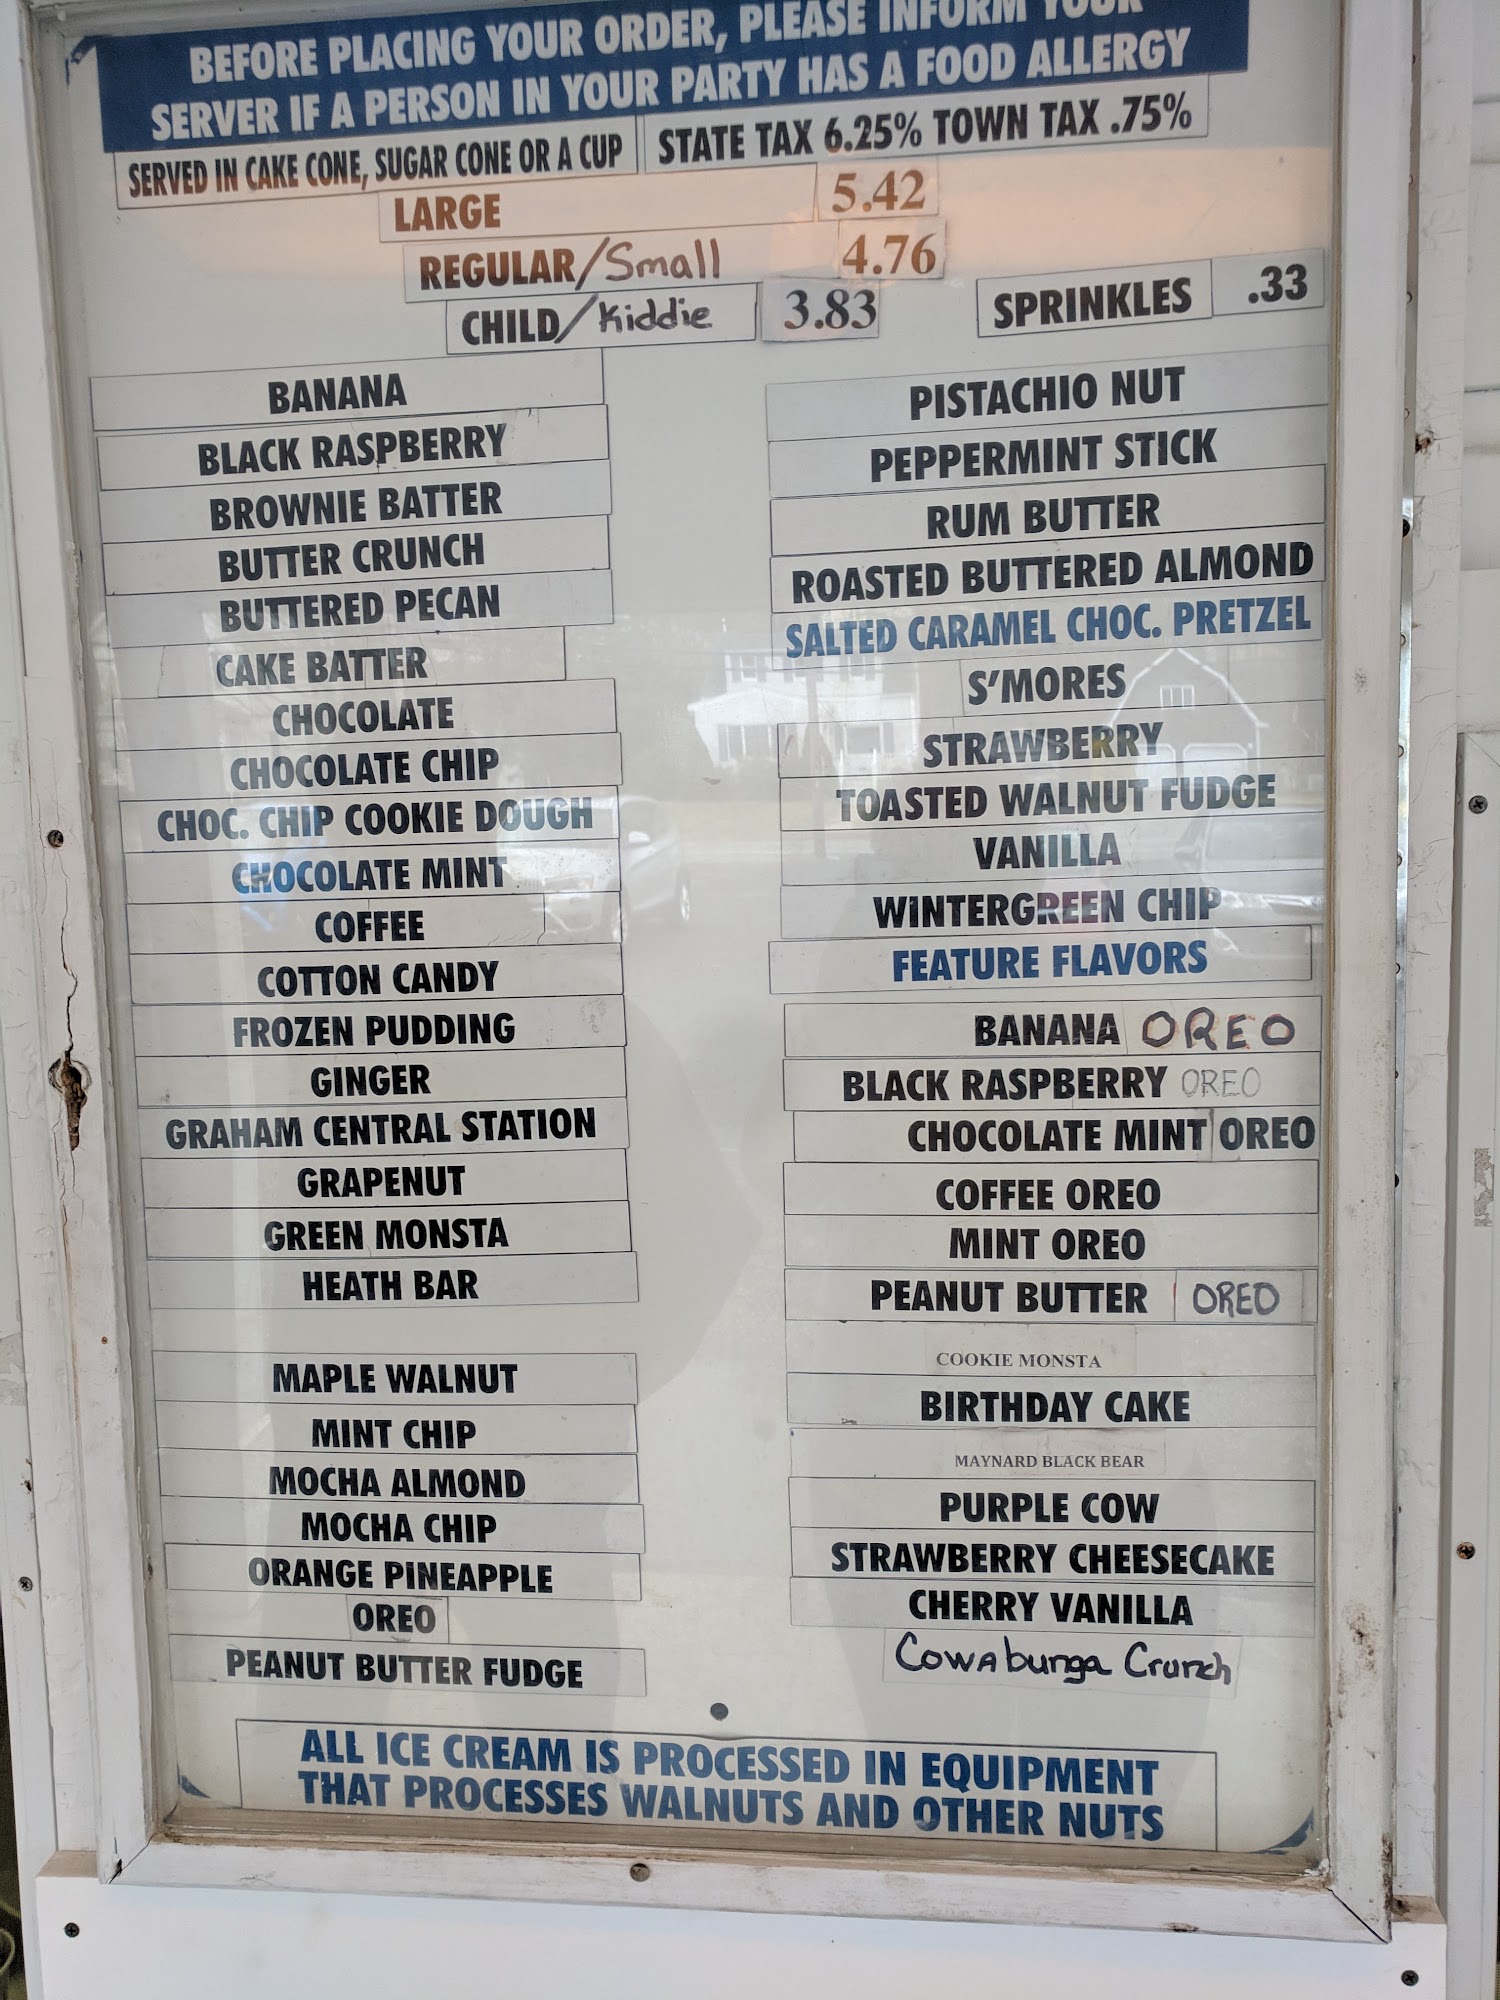 BEFORE PLACING YOUR ORDER, PLEASE INFORM YOUR
SERVER IF A PERSON IN YOUR PARTY HAS A FOOD ALLERGY
SERVED IN CAKE CONE, SUGAR CONE OR A CUP
STATE TAX 6.25% TOWN TAX .75%
LARGE 5.42
REGULAR/Small 4.76
CHILD/Kiddie 3.83
SPRINKLES .33
BANANA
BLACK RASPBERRY
BROWNIE BATTER
BUTTER CRUNCH
BUTTERED PECAN
CAKE BATTER
CHOCOLATE
CHOCOLATE CHIP
CHOC. CHIP COOKIE DOUGH
CHOCOLATE MINT
COFFEE
COTTON CANDY
FROZEN PUDDING
GINGER
GRAHAM CENTRAL STATION
GRAPENUT
GREEN MONSTA
HEATH BAR
MAPLE WALNUT
MINT CHIP
MOCHA ALMOND
MOCHA CHIP
ORANGE PINEAPPLE
OREO
PEANUT BUTTER FUDGE
PISTACHIO NUT
PEPPERMINT STICK
RUM BUTTER
ROASTED BUTTERED ALMOND
SALTED CARAMEL CHOC. PRETZEL
S'MORES
STRAWBERRY
TOASTED WALNUT FUDGE
VANILLA
WINTERGREEN CHIP
FEATURE FLAVORS
BANANA OREO
BLACK RASPBERRY OREO
CHOCOLATE MINT OREO
COFFEE OREO
MINT OREO
PEANUT BUTTER OREO
COOKIE MONSTA
BIRTHDAY CAKE
MAYNARD BLACK BEAR
PURPLE COW
STRAWBERRY CHEESECAKE
CHERRY VANILLA
Cowabunga Crunch
ALL ICE CREAM IS PROCESSED IN EQUIPMENT
THAT PROCESSES WALNUTS AND OTHER NUTS